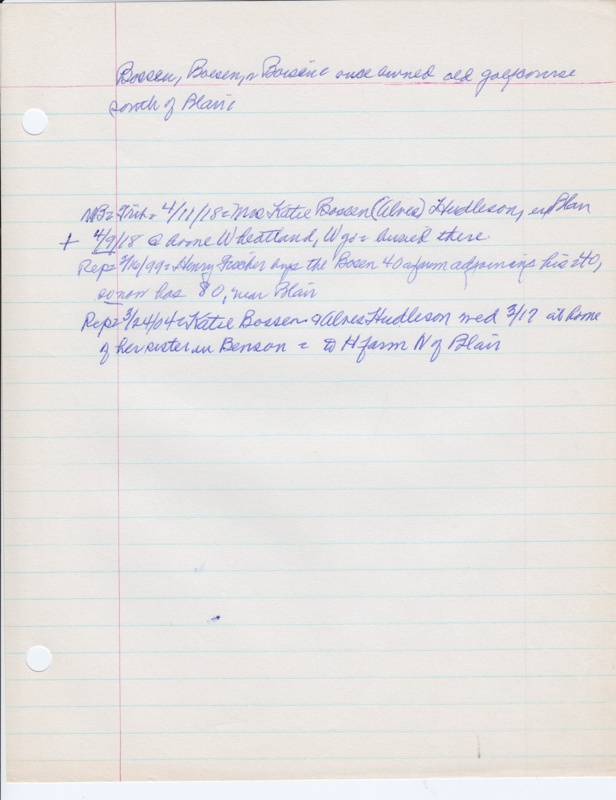 Bossen, Boesen, or Boisen = once owned old golfcourse
south of Blair.
NB= Trib = 4/11/18 = Mrs Katie Bossen (Alves) Hudleson, ex Blair
+ 4/9/18 @ home Wheatland, Wyo = buried there
Rep= 99 = Henry buys the Bosen 40 a farm adjoining his 40,
so now has 80, near Blair
Rep= 3/24/04 = Katie Bossen & Alves Hudleson wed 3/17 at home
of her sister in Benson = to H farm N of Blair